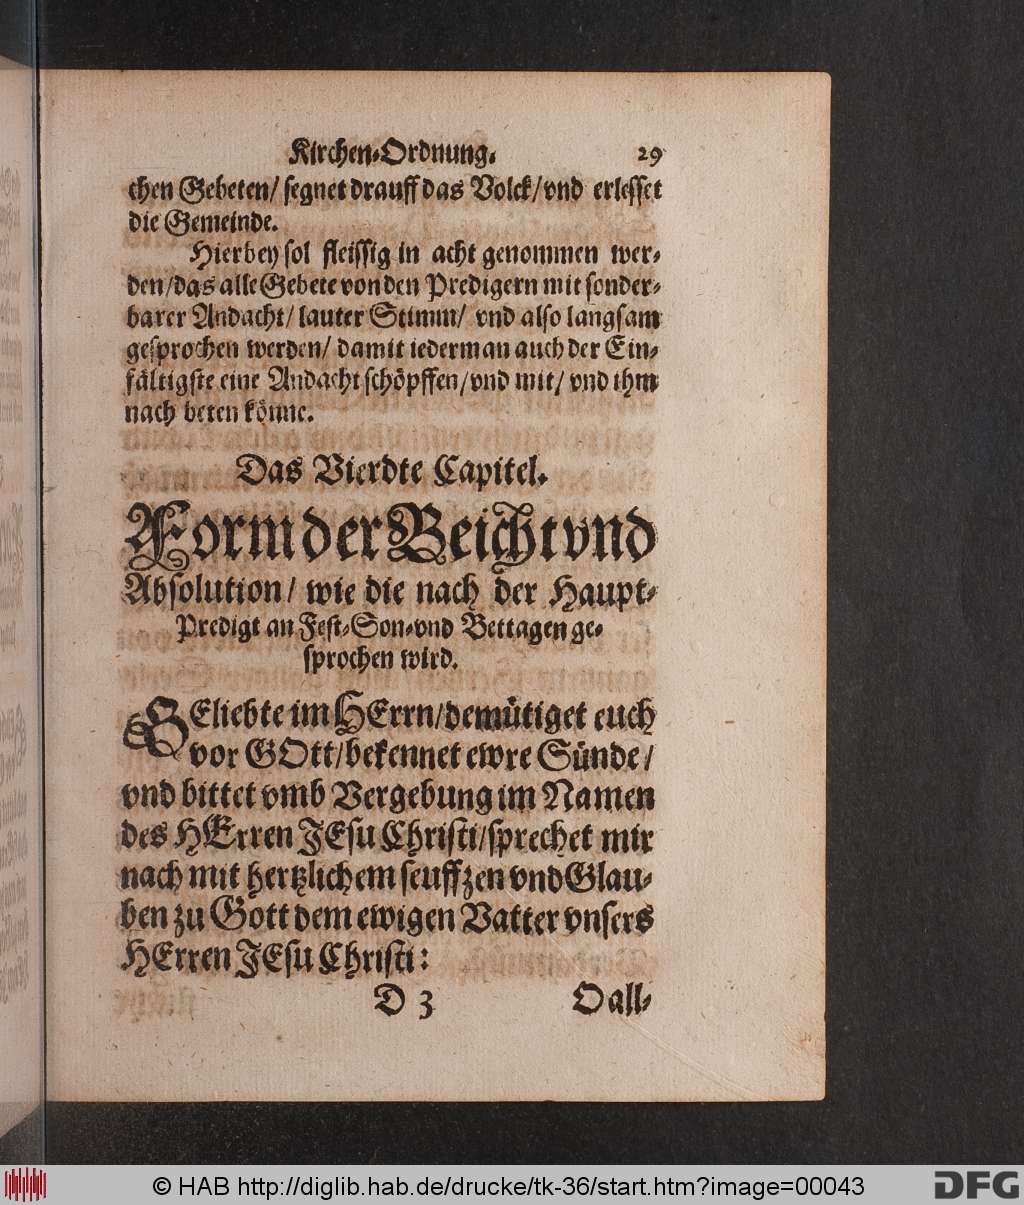 Kirchen-Ordnung. 29
chen Gebeten/ segnet drauff das Volck/ vnd erlesset
die Gemeinde.
Hierbey sol fleissig in acht genommen wer-
den/ das alle Gebete von den Predigern mit sonder-
barer Andacht/ lauter Stimm/ vnd also langsam
gesprochen werden/ damit iederman auch der Ein-
fältigste eine Andacht schöpffen/ vnd mit/ vnd ihm
nach beten könne.
Das Vierdte Capitel.
Form der Beicht vnd
Absolution/ wie die nach der Haupt-
Predigt an Fest-Son-vnd Bettagen ge-
sprochen wird.
GEliebte im HErrn/ demütiget euch
vor GOtt/ bekennet ewre Sünde/
vnd bittet vmb Vergebung im Namen
des HErren JEsu Christi/ sprechet mir
nach mit hertzlichem seuffzen vnd Glau-
ben zu Gott dem ewigen Vatter vnsers
HErren JEsu Christi:
D 3 O all-
© HAB http://diglib.hab.de/drucke/tk-36/start.htm?image=00043
DFG